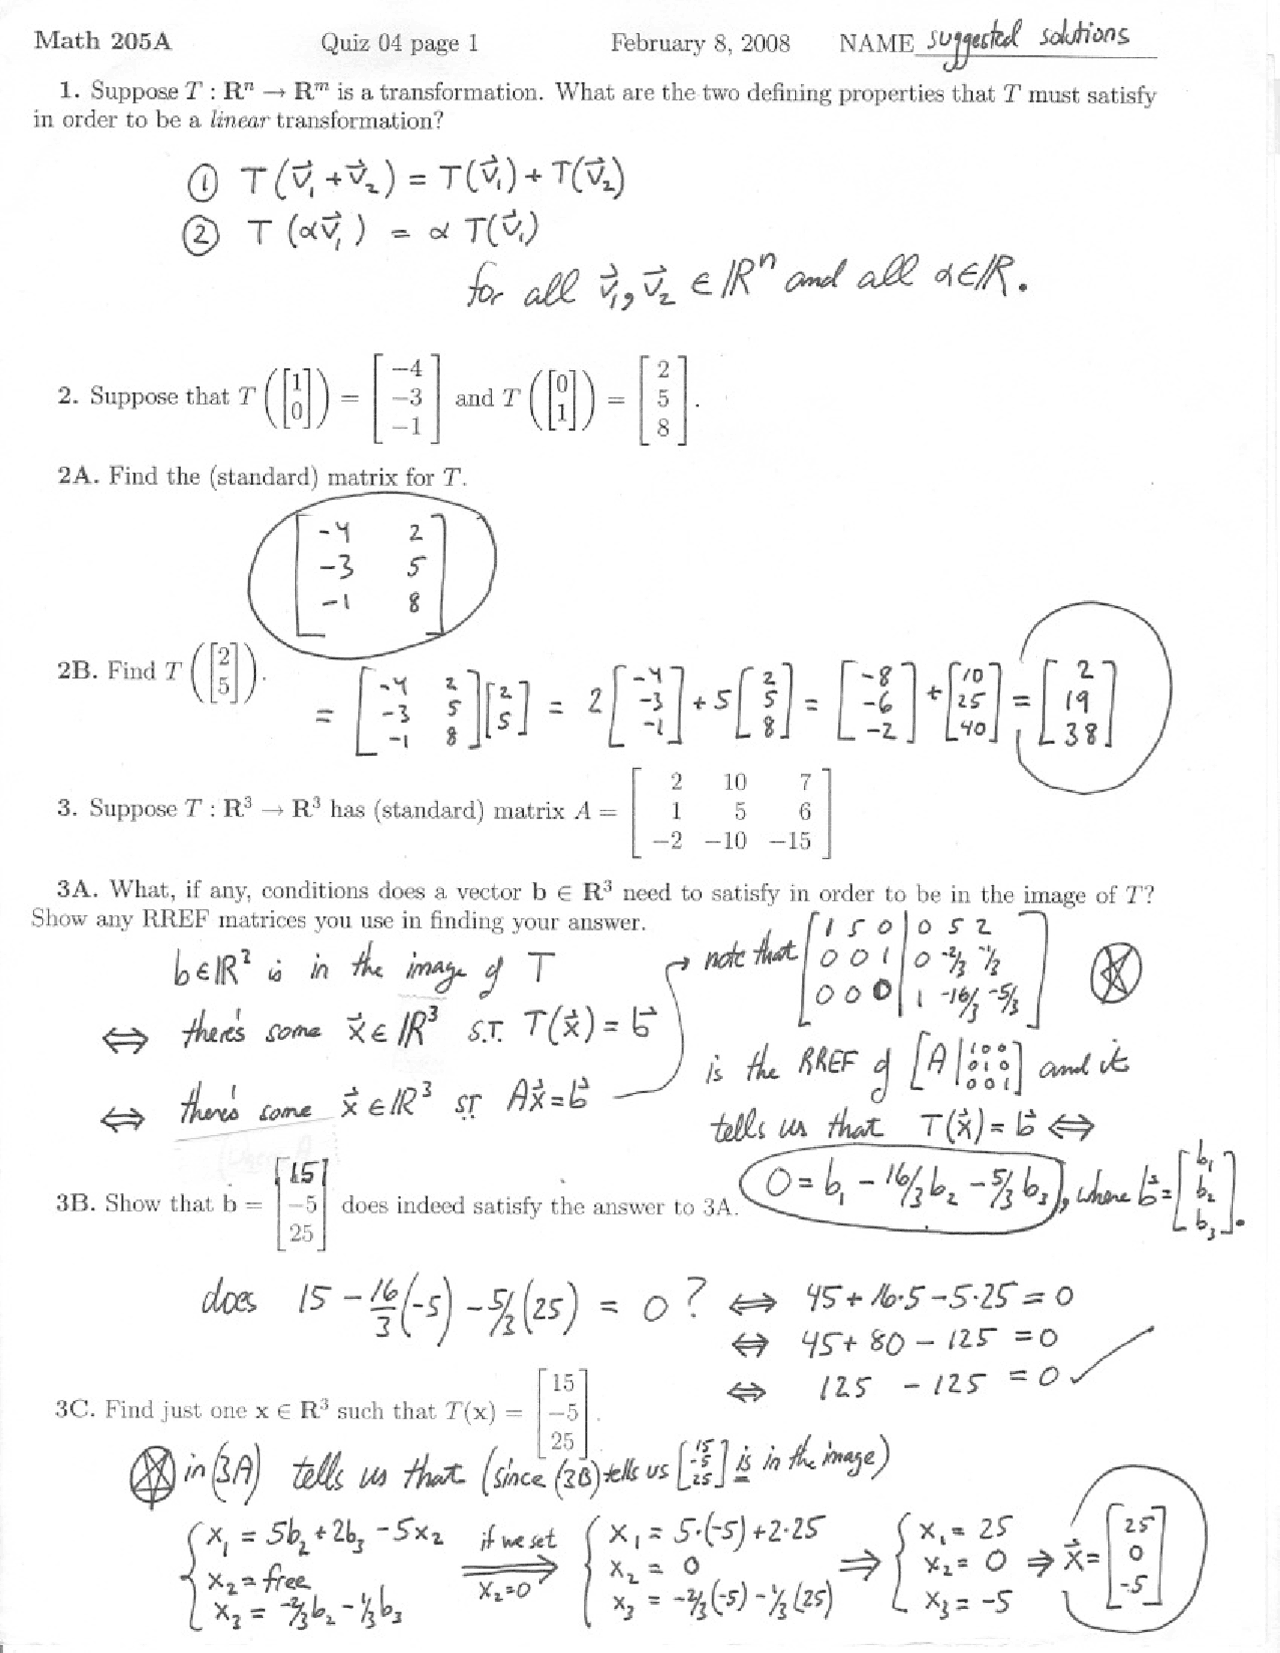 Math 205A Quiz 04 page 1 February 8, 2008 NAME suggested solutions
1. Suppose T : Rⁿ → Rᵐ is a transformation. What are the two defining properties that T must satisfy
in order to be a linear transformation?
① T(v⃗₁ + v⃗₂) = T(v⃗₁) + T(v⃗₂)
② T(αv⃗₁) = α T(v⃗₁)
for all v⃗₁, v⃗₂ ∈ ℝⁿ and all α ∈ ℝ.
2. Suppose that T([1; 0]) = [−4; −3; −1] and T([0; 1]) = [2; 5; 8].
2A. Find the (standard) matrix for T.
[-4 2; -3 5; -1 8]
2B. Find T([2; 5]).
= [-4 2; -3 5; -1 8][2; 5] = 2[-4; -3; -1] + 5[2; 5; 8] = [-8; -6; -2] + [10; 25; 40] = [2; 19; 38]
3. Suppose T : R³ → R³ has (standard) matrix A = [2 10 7; 1 5 6; −2 −10 −15]
3A. What, if any, conditions does a vector b ∈ R³ need to satisfy in order to be in the image of T?
Show any RREF matrices you use in finding your answer.
b ∈ ℝ² is in the image of T
⇔ there's some x⃗ ∈ ℝ³ s.t. T(x⃗) = b⃗
⇔ there's some x⃗ ∈ ℝ³ st Ax⃗ = b⃗
note that [1 5 0 | 0 5 2; 0 0 1 | 0 -2/3 -1/3; 0 0 0 | 1 -16/3 -5/3] ⊛
is the RREF of [A | 1 0 0; 0 1 0; 0 0 1] and it
tells us that T(x⃗) = b⃗ ⇔
0 = b₁ - 16/3 b₂ - 5/3 b₃, where b⃗ = [b₁; b₂; b₃].
3B. Show that b = [15; −5; 25] does indeed satisfy the answer to 3A.
does 15 - 16/3(-5) - 5/3(25) = 0? ⇔ 45 + 16·5 - 5·25 = 0
⇔ 45 + 80 - 125 = 0
⇔ 125 - 125 = 0 ✓
3C. Find just one x ∈ R³ such that T(x) = [15; −5; 25].
⊛ in (3A) tells us that (since (3B) tells us [15; -5; 25] is in the image)
{x₁ = 5b₂ + 2b₃ - 5x₂; x₂ = free; x₃ = -2/3 b₂ - 1/3 b₃ if we set x₂=0 ⇒ {x₁ = 5·(-5) + 2·25; x₂ = 0; x₃ = -2/3(-5) - 1/3(25) ⇒ {x₁ = 25; x₂ = 0; x₃ = -5 ⇒ x⃗ = [25; 0; -5]